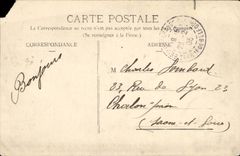 CARTE POSTALE
La Correspondance au recto n'est pas acceptée par tous les pays
(Se renseigner à la Poste)
CORRESPONDANCE
ADRESSE
Bonjours
M Charles Jombart
23, Rue de Lyon 23
Chalon
(Saone et Loire)